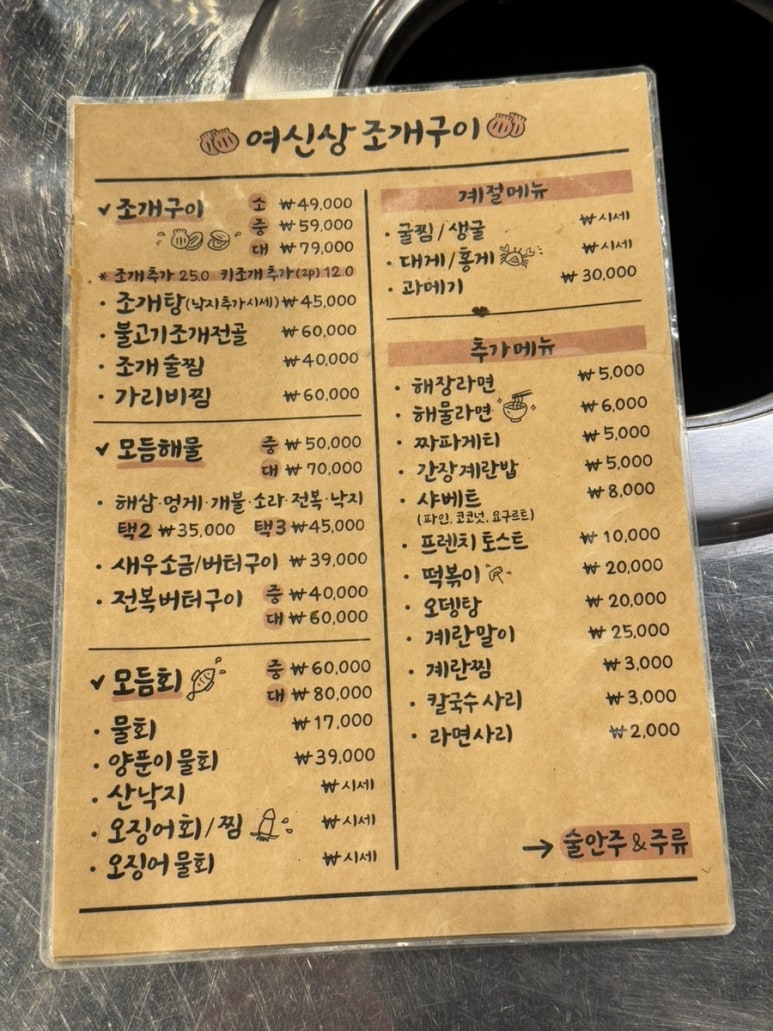 여신상 조개구이
✓ 조개구이 소 ₩49,000
중 ₩59,000
대 ₩79,000
* 조개추가 25.0 키조개추가(2p) 12.0
· 조개탕(낙지추가시세) ₩45,000
· 불고기조개전골 ₩60,000
· 조개술찜 ₩40,000
· 가리비찜 ₩60,000
✓ 모듬해물 중 ₩50,000
대 ₩70,000
· 해삼·멍게·개불·소라·전복·낙지
택2 ₩35,000 택3 ₩45,000
· 새우소금/버터구이 ₩39,000
· 전복버터구이 중 ₩40,000
대 ₩60,000
✓ 모듬회 중 ₩60,000
대 ₩80,000
· 물회 ₩17,000
· 양푼이물회 ₩39,000
· 산낙지 ₩시세
· 오징어회/찜 ₩시세
· 오징어물회 ₩시세
계절메뉴
· 굴찜/생굴 ₩시세
· 대게/홍게 ₩시세
· 과메기 ₩30,000
추가메뉴
· 해장라면 ₩5,000
· 해물라면 ₩6,000
· 짜파게티 ₩5,000
· 간장계란밥 ₩5,000
· 샤베트 ₩8,000
(파인, 코코넛, 요구르트)
· 프렌치토스트 ₩10,000
· 떡볶이 ₩20,000
· 오뎅탕 ₩20,000
· 계란말이 ₩25,000
· 계란찜 ₩3,000
· 칼국수사리 ₩3,000
· 라면사리 ₩2,000
→ 술안주 & 주류